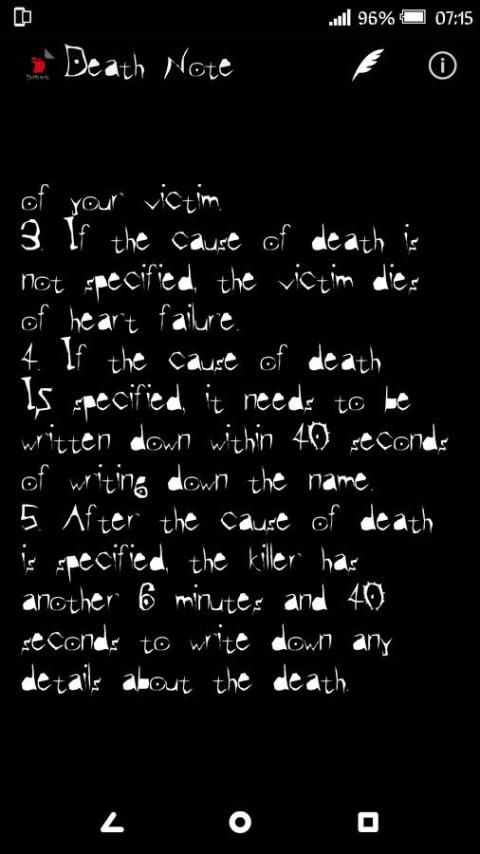 96% 07:15
Death Note
of your victim.
3. If the cause of death is
not specified, the victim dies
of heart failure.
4. If the cause of death
Is specified, it needs to be
written down within 40 seconds
of writing down the name.
5. After the cause of death
is specified, the killer has
another 6 minutes and 40
seconds to write down any
details about the death.